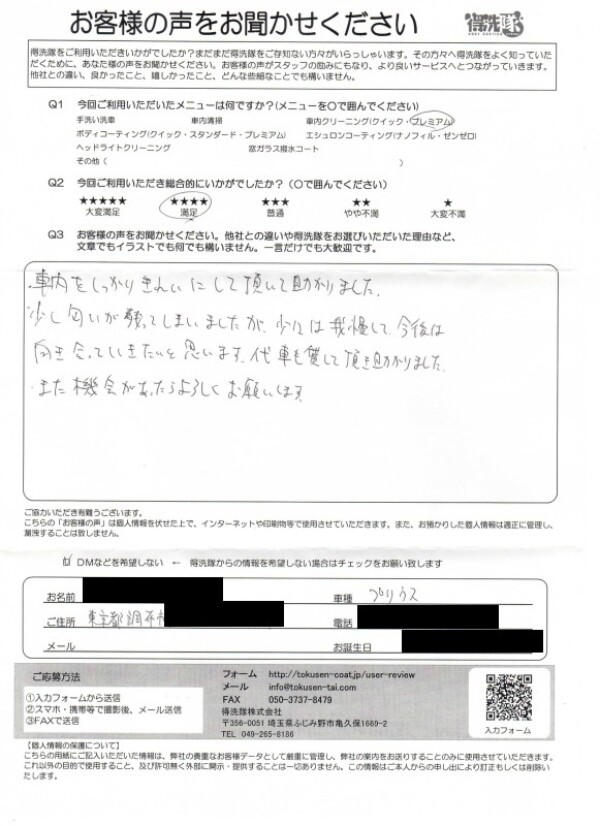 お客様の声をお聞かせください
得洗隊
得洗隊をご利用いただきいかがでしたか?まだまだ得洗隊をご存知ない方々がいらっしゃいます。その方々へ得洗隊をよく知っていた
だくために、あなた様の声をお聞かせください。お客様の声がスタッフの励みにもなり、より良いサービスへとつながっていきます。
他社との違い、良かったこと、嬉しかったこと、どんな些細なことでも構いません。
Q1 今回ご利用いただいたメニューは何ですか?(メニューを〇で囲んでください)
手洗い洗車 車内清掃 車内クリーニング(クイック・プレミアム)
ボディコーティング(クイック・スタンダード・プレミアム) エシュロンコーティング(ナノフィル・ゼンゼロ)
ヘッドライトクリーニング 窓ガラス撥水コート
その他( )
Q2 今回ご利用いただき総合的にいかがでしたか?(〇で囲んでください)
★★★★★ ★★★★ ★★★ ★★ ★
大変満足 満足 普通 やや不満 大変不満
Q3 お客様の声をお聞かせください。他社との違いや得洗隊をお選びいただいた理由など、
文章でもイラストでも何でも構いません。一言だけでも大歓迎です。
・車内をしっかりきれいにして頂いて助かりました。
・少し匂いが残ってしまいましたが、少々は我慢して、今後は
向き合っていきたいと思います。代車も貸して頂き助かりました。
・また機会があったらよろしくお願いします
ご協力いただき有難うございます。
こちらの「お客様の声」は個人情報を伏せた上で、インターネットや印刷物等で使用させていただきます。また、お預かりした個人情報は適正に管理し、
漏洩することは致しません。
DMなどを希望しない ← 得洗隊からの情報を希望しない場合はチェックをお願い致します
お名前 車種 プリウス
ご住所 東京都調布市 電話
メール お誕生日
ご応募方法
①入力フォームから送信
②スマホ・携帯等で撮影後、メール送信
③FAXで送信
フォーム http://tokusen-coat.jp/user-review
メール info@tokusen-tai.com
FAX 050-3737-8479
得洗隊株式会社
〒356-0051 埼玉県ふじみ野市亀久保1669-2
TEL 049-265-8186
入力フォーム
【個人情報の保護について】
こちらの用紙にご記入いただいた情報は、弊社の貴重なお客様データとして厳重に管理し、弊社の案内をお送りすることのみに使用させていただきます。
これ以外の目的で使用すること、及び許可無く外部に開示・提供することは一切ありません。この情報はご本人からの申し出により訂正もしくは削除い
たします。